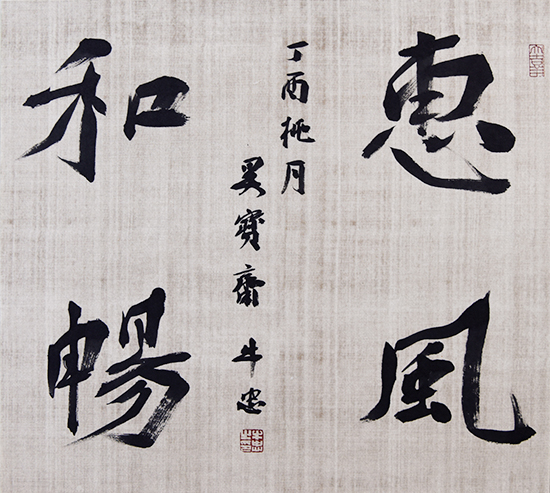 惠風
和暢
丁酉桃月
吴寶齋牛忠